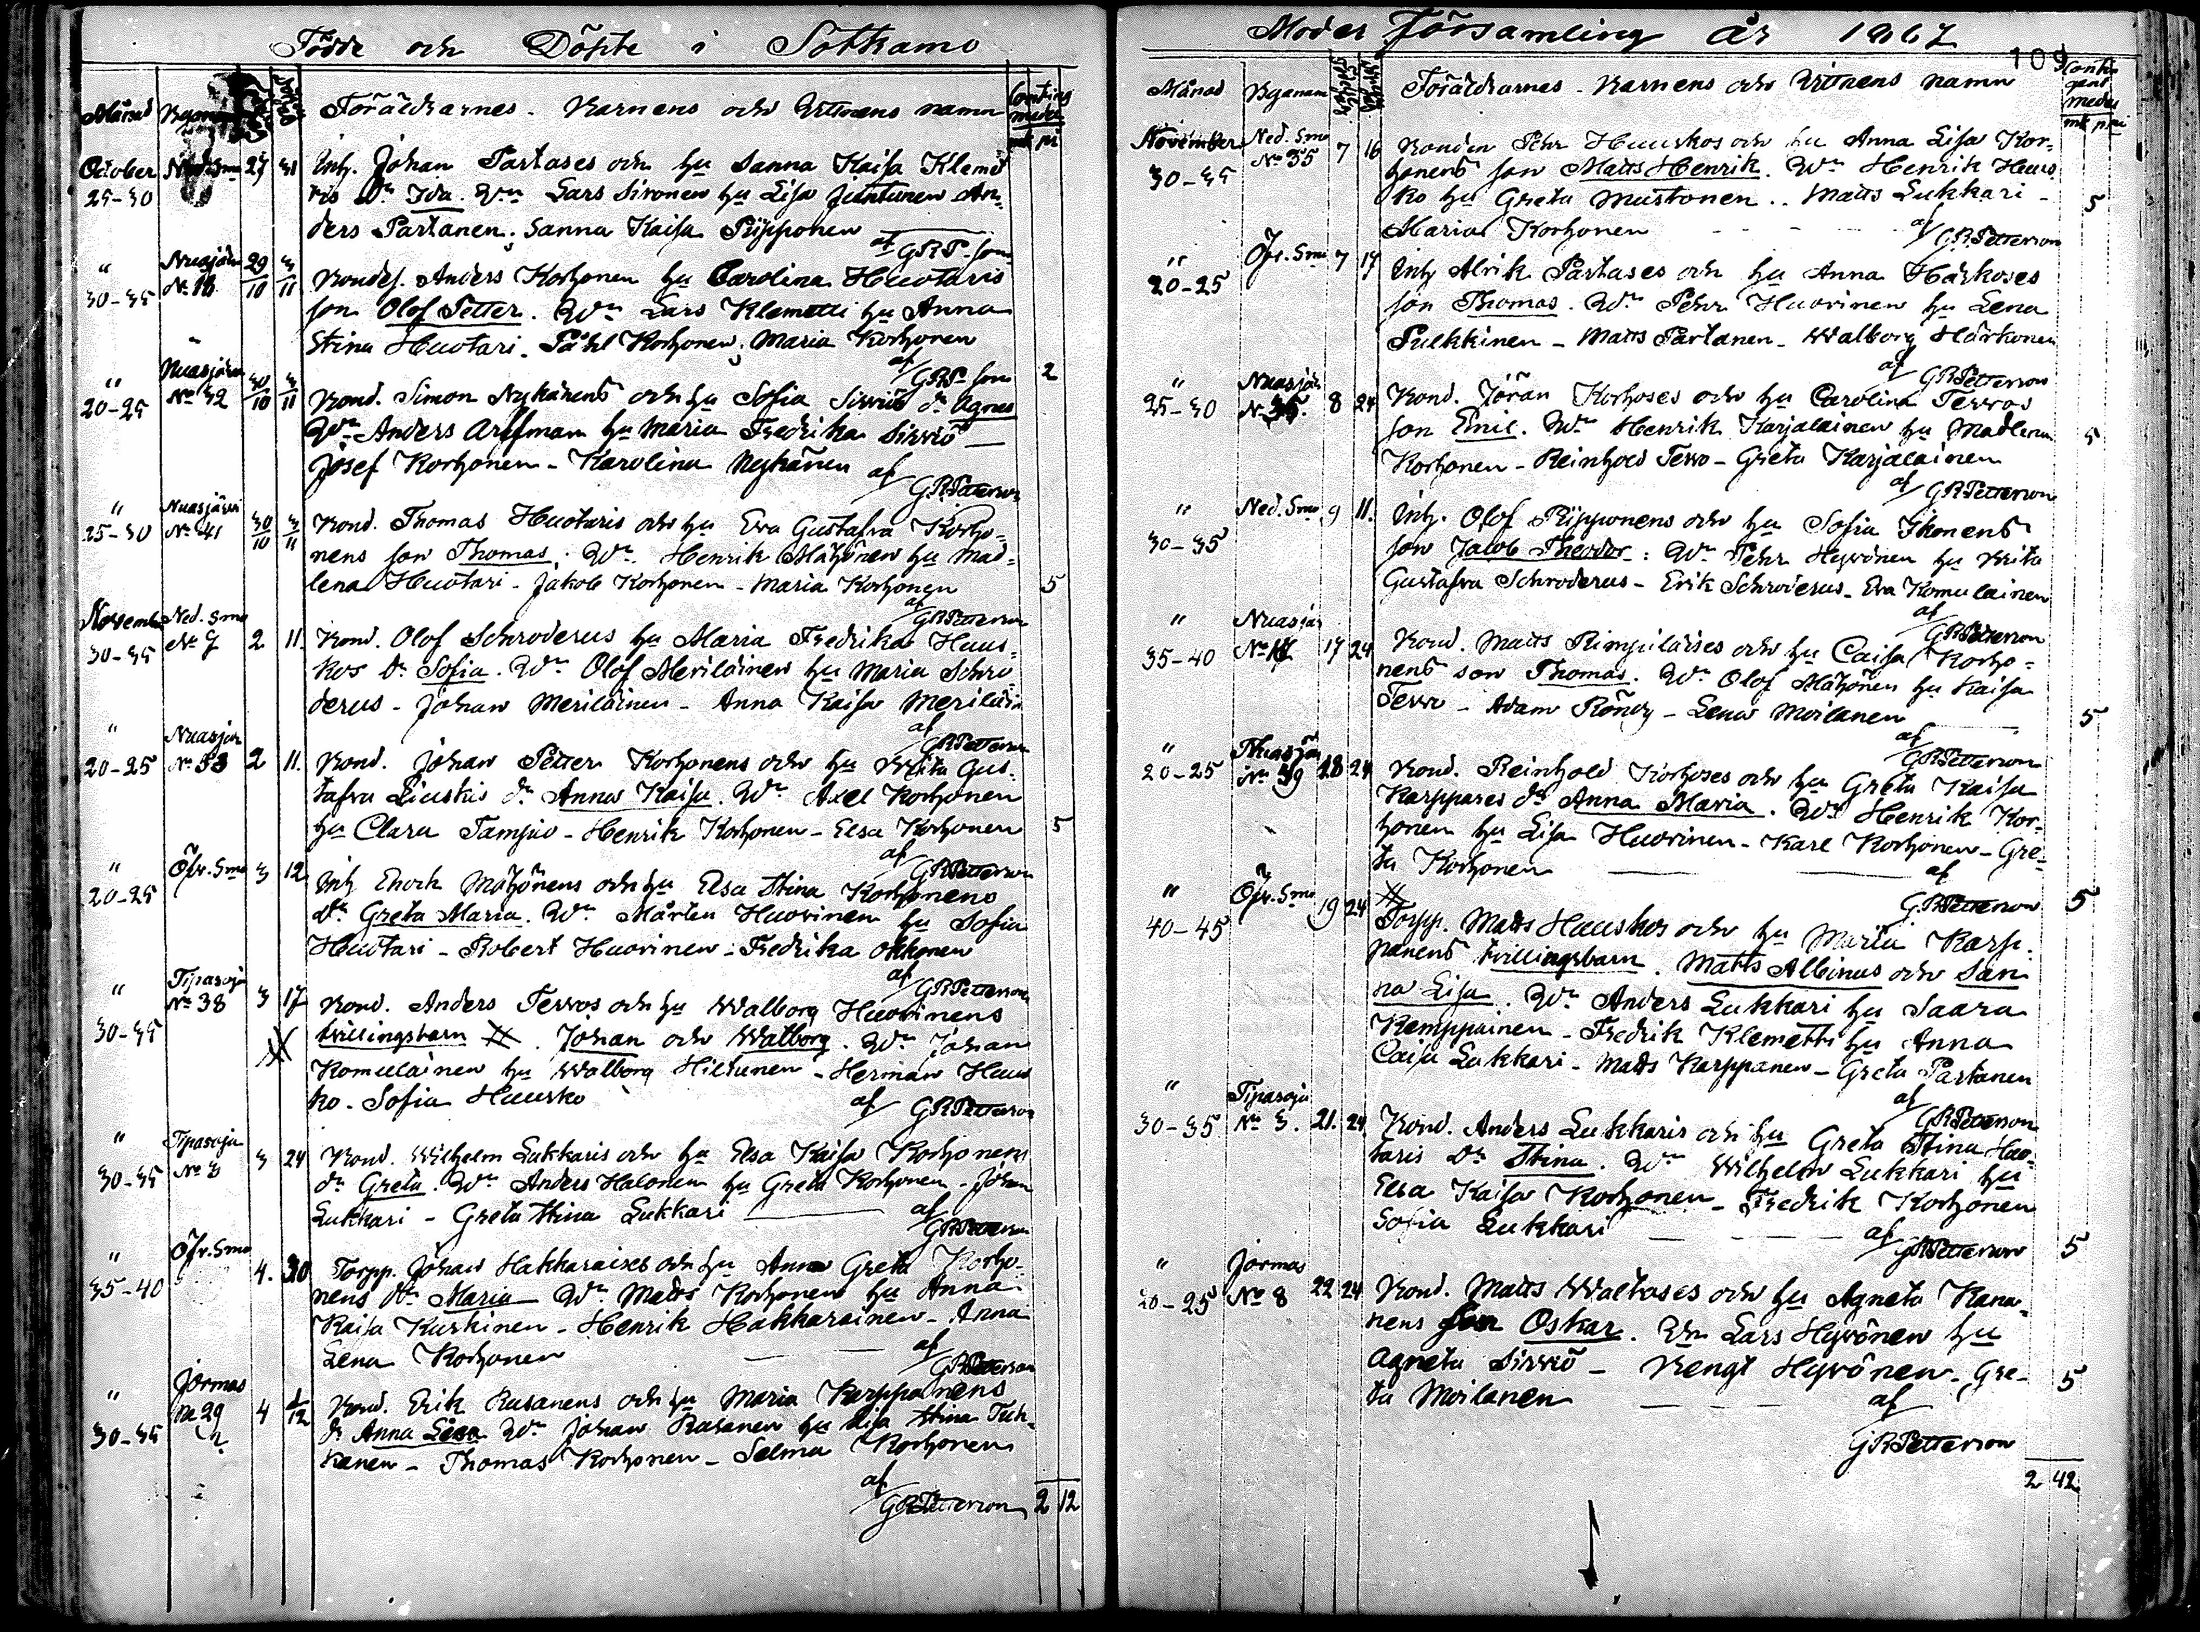 Födde och Döpte i Sotkamo
Månad
Föräldrarnes. Barnens och Vittnens namn
mk pi
October 27 31 Inh. Johan Partases och hu Sanna Kaisa Klemet
25-30 ris dr Ida. Wn Lars Sironen hu Lisa Juntunen An-
ders Partanen. Sanna Kaisa Piipponen
af GRP-son
" Nuasjärvi 29/10 3/11 Bondes. Anders Korhonen hu Carolina Huotaris
30-35 son Olof Petter. Wn Lars Klemetti hu Anna
Stina Huotari. Påhl Korhonen. Maria Korhonen
af GRP-son 2
" Nuasjärvi No 32 30/10 3/11 Bond. Simon Nykänens och hu Sofia Sirviös dr Agnes
20-25 Wn Anders Arffman hu Maria Fredrika Sirviö
Josef Korhonen - Karolina Nykänen af
GRPetterson
" Nuasjärvi No 41 30/10 3/11 Bond. Thomas Huotaris och hu Eva Gustafva Korho-
25-30 nens son Thomas. Wn Henrik Mähönen hu Mad-
lena Huotari - Jakob Korhonen - Maria Korhonen 5
af GRPetterson
November Ned. Smo No 7 2 11. Bond. Olof Schroderus hu Maria Fredrika Huus-
30-35 kos dr Sofia. Wn Olof Meriläinen hu Maria Schro
derus - Johan Meriläinen - Anna Kaisa Meriläin
af GRPetterson
" Nuasjär No 53 2 11. Bond. Johan Petter Korhonens och hu Brita Gus-
20-25 tafva Liuskis dr Anna Kaisa. Wn Axel Korhonen
hu Clara Tamjio - Henrik Korhonen - Elsa Korhonen 5
af GRPetterson
" Öfr. Smo 3 12 Inh Enoch Mähönens och hu Elsa Stina Korhonens
20-25 dr Greta Maria. Wn Mårten Huovinen hu Sofia
Huotari - Robert Huovinen - Fredrika Okkonen
af GRPetterson
" Tipasoja No 38 3 17 Bond. Anders Tervos och hu Walborg Huovinens
30-35 tvillingsbarn XX. Johan och Walborg. Wn Johan
Komulainen hu Walborg Hiltunen - Herman Huus
ko. Sofia Huusko af GRPetterson
" Tipasoja No 3 3 24 Bond. Wilhelm Lukkaris och hu Elsa Kaisa Korhonens
30-35 dr Greta. Wn Anders Halonen hu Greta Korhonen - Johan
Lukkari - Greta Stina Lukkari
af GRPetterson
" Öfr. Smo 4. 30 Torpp. Johan Hakkaraises och hu Anna Greta Korho-
35-40 nens dr Maria Wn Matts Korhonen hu Anna
Kaisa Kurkinen - Henrik Hakkarainen - Anna
Lena Korhonen af
GRPetterson
" Jormas No 29 4 1/12 Bond. Erik Rusanens och hu Maria Karppanens
30-35 dr Anna Lisa Wn Johan Rusanen hu Lisa Stina Tuh-
kanen - Thomas Korhonen - Selma Korhonen
af
GRPetterson 2 12
Moder Församling år 1867
109
Månad Bynamn Föräldrarnes - Barnens och Vittnens namn
mk pni
November Ned. Smo No 35 7 16 Bonden Pehr Huuskos och hu Anna Lisa Kor-
30-35 honens son Matts Henrik. Wn Henrik Huus
ko hu Greta Mustonen.. Matts Lukkari - 5
Maria Korhonen af
GRPetterson
" Öfr. Smo 7 17 Inh Alrik Partases och hu Anna Härkoses
20-25 son Thomas. Wn Pehr Huovinen hu Lena
Pulkkinen - Matts Partanen - Walborg Härkonen
af GRPetterson
" Nuasjär No 35. 8 24 Bond. Jöran Korhoses och hu Carolina Tervos
25-30 son Emil. Wn Henrik Karjalainen hu Madlena 5
Korhonen - Reinhold Tervo - Greta Karjalainen
af GRPetterson
" Ned. Smo 9 11. Inh. Olof Piipponens och hu Sofia Ikonens
30-35 son Jacob Theodor: Wn Pehr Hyvönen hu Brita
Gustafva Schroderus - Erik Schroderus - Eva Komulainen
af GRPetterson
" Nuasjär 17 24 Bond. Matts Rimpiläises och hu Caisa Korho-
35-40 nens son Thomas. Wn Olof Mähönen hu Kaisa
Tervo - Adam Röndy - Lena Moilanen 5
af GRPetterson
" Nuasjär No 39 18 24 Bond. Reinhold Korhoses och hu Greta Kaisa
20-25 Karppares dr Anna Maria. Wn Henrik Kor-
honen hu Lisa Huovinen - Karl Korhonen - Gre-
ta Korhonen af
GRPetterson 5
" Öfr. Smo 19 24 XX Torpp. Matts Huuskos och hu Maria Karp-
40-45 panens tvillingsbarn. Matts Albinus och San
na Lisa. Wn Anders Lukkari hu Saara
Kemppainen - Fredrik Klemetti hu Anna
Caisa Lukkari - Matts Karppanen - Greta Partanen
af GRPetterson
" Tipasoja No 3. 21. 24 Bond. Anders Lukkaris och hu Greta Stina Huo-
30-35 taris dr Stina. Wn Wilhelm Lukkari hu
Elsa Kaisa Korhonen - Fredrik Korhonen
Sofia Lukkari af
GRPetterson 5
" Jormas No 8 22 24 Bond. Matts Waltases och hu Agneta Kana-
20-25 nens son Oskar. Wn Lars Hyvönen hu
Agneta Sirviö - Bengt Hyvönen - Gre- 5
ta Moilanen af
GRPetterson
2 42